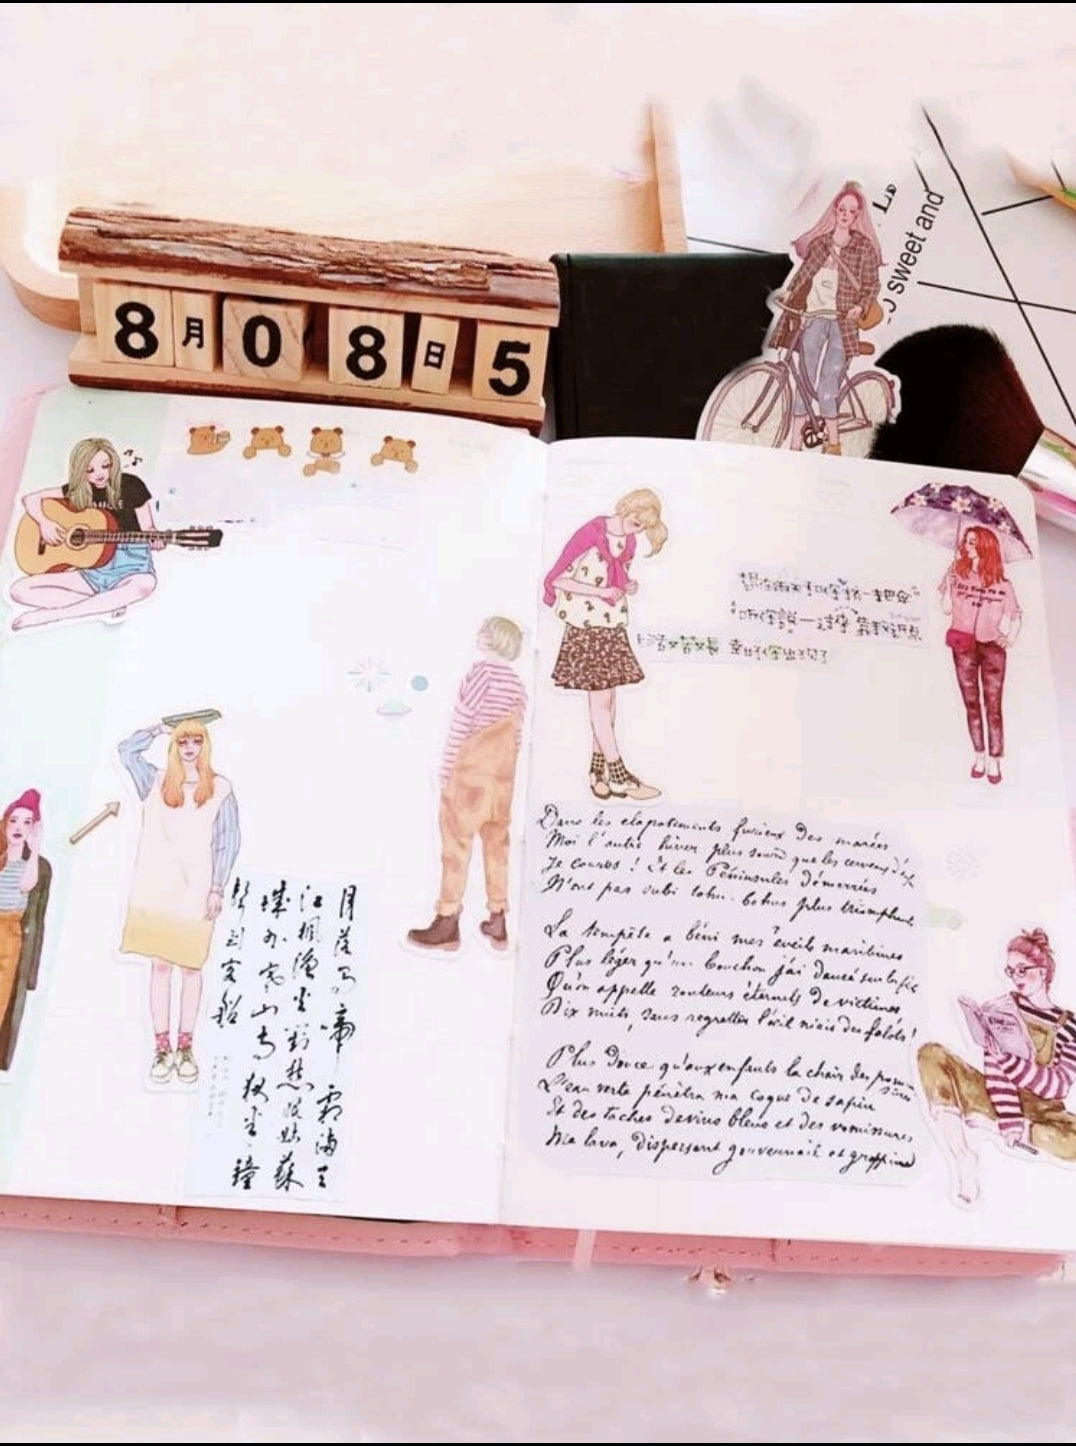 8月08日5
sweet and
想在雨天和你撑一把伞
听你説一过来 靠我近点
生活又苦又長 幸好你出现了
月落乌啼霜满天
江枫渔火对愁眠姑蘇
城外寒山寺夜半鐘
聲到客船
Dans les clapotements furieux des marées
Moi l'autre hiver plus sourd que les cerveaux d'enf
Je courus ! Et les Péninsules démarrées
N'ont pas subi tohu-bohus plus triomphants
La tempête a béni mes éveils maritimes
Plus léger qu'un bouchon j'ai dansé sur les
Qu'on appelle rouleurs éternels de victimes
Dix nuits, sans regretter l'œil niais des falots !
Plus douce qu'aux enfants la chair des pommes sûres
L'eau verte pénétra ma coque de sapin
Et des taches de vins bleus et des vomissures
Me lava, dispersant gouvernail et grappin